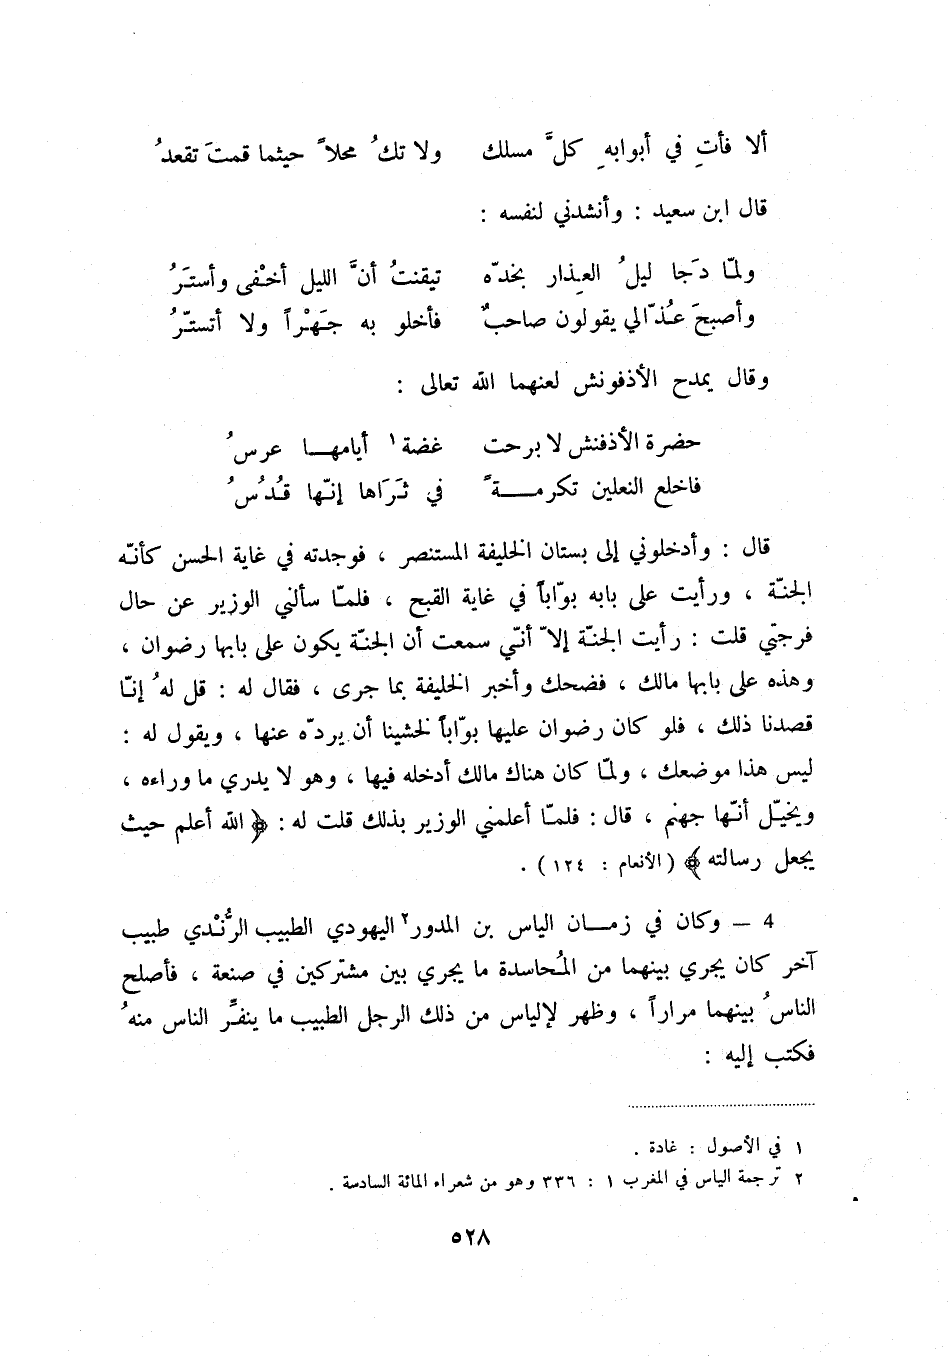 ألا فأتِ في أبوابهِ كلَّ مسلك ولا تكُ محلاًّ حيثما قمتَ تقعدُ
قال ابن سعيد : وأنشدني لنفسه :
ولمّا دَجا ليلُ العِذار بخدّه تيقنتُ أنَّ الليل أخْفى وأستَرُ
وأصبحَ عُذّالي يقولون صاحبٌ فأخلو به جَهْراً ولا أتستّرُ
وقال يمدح الأذفونش لعنهما الله تعالى :
حضرة الأذفنش لا برحت غضة١ أيامهـا عرسُ
فاخلع النعلين تكرمـةً في ثَرَاها إنّها قُدُسُ
قال : وأدخلوني إلى بستان الخليفة المستنصر ، فوجدته في غاية الحسن كأنّه
الجنّة ، ورأيت على بابه بوّاباً في غاية القبح ، فلمّا سألني الوزير عن حال
فرجتي قلت : رأيت الجنّة إلاّ أنّي سمعت أن الجنّة يكون على بابها رضوان ،
وهذه على بابها مالك ، فضحك وأخبر الخليفة بما جرى ، فقال له : قل لهُ إنّا
قصدنا ذلك ، فلو كان رضوان عليها بوّاباً لخشينا أن يردّه عنها ، ويقول له :
ليس هذا موضعك ، ولمّا كان هناك مالك أدخله فيها ، وهو لا يدري ما وراءه ،
ويخيّل أنّها جهنم ، قال : فلمّا أعلمني الوزير بذلك قلت له : ﴿ الله أعلم حيث
يجعل رسالته ﴾ ( الأنعام : ١٢٤ ) .
4 – وكان في زمـان الياس بن المدور٢ اليهودي الطبيب الرُّنْدي طبيب
آخر كان يجري بينهما من المُحاسدة ما يجري بين مشتركين في صنعة ، فأصلح
الناسُ بينهما مراراً ، وظهر لإلياس من ذلك الرجل الطبيب ما ينفِّر الناس منهُ
فكتب إليه :
١ في الأصول : غادة .
٢ ترجمة الياس في المغرب ١ : ٣٣٦ وهو من شعراء المائة السادسة .
٥٢٨